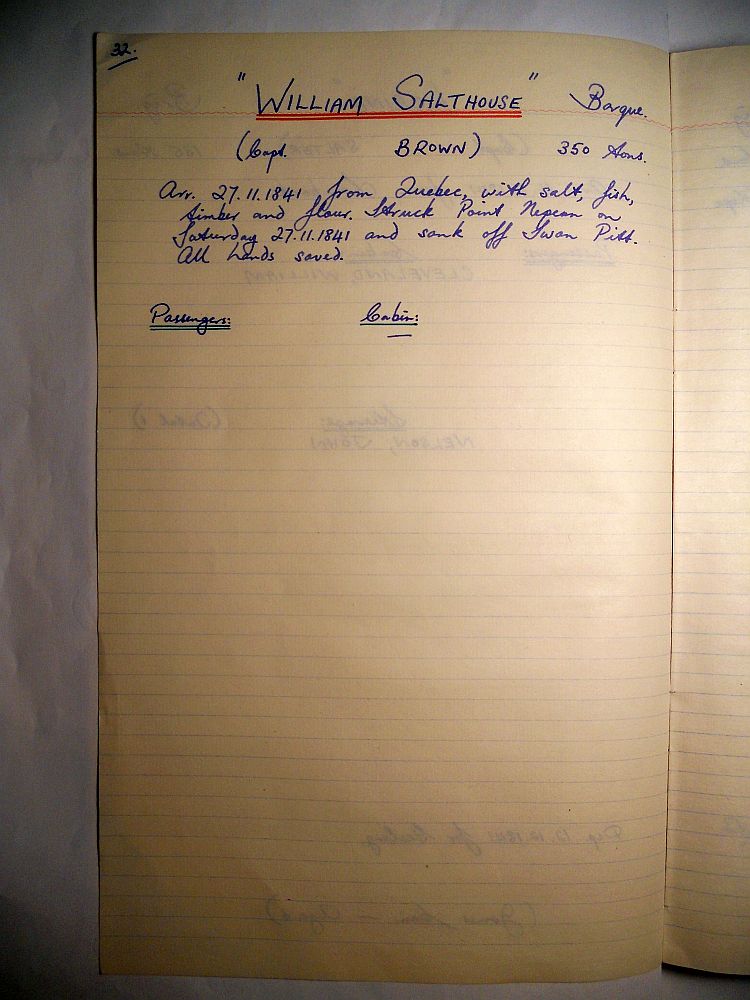 32.
"WILLIAM SALTHOUSE" Barque.
(Capt. BROWN) 350 tons.
Arr. 27.11.1841 from Quebec, with salt, fish,
timber and flour. Struck Point Nepean on
Saturday 27.11.1841 and sank off Swan Pitt.
All hands saved.
Passengers: Cabin: